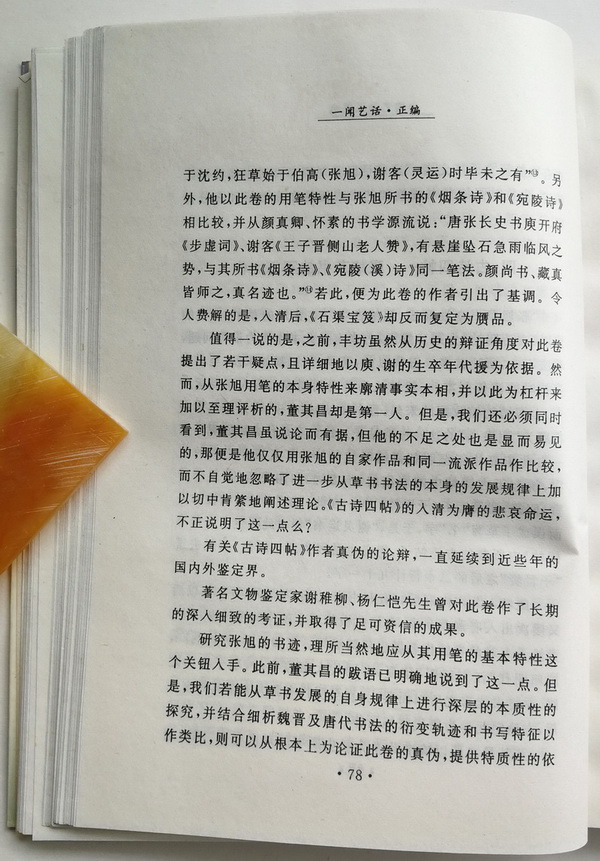 一闻艺话·正编
于沈约，狂草始于伯高(张旭)，谢客(灵运)时毕未之有”⑬。另
外，他以此卷的用笔特性与张旭所书的《烟条诗》和《宛陵诗》
相比较，并从颜真卿、怀素的书学源流说：“唐张长史书庾开府
《步虚词》、谢客《王子晋侧山老人赞》，有悬崖坠石急雨临风之
势，与其所书《烟条诗》、《宛陵(溪)诗》同一笔法。颜尚书、藏真
皆师之，真名迹也。”⑭若此，便为此卷的作者引出了基调。令
人费解的是，入清后，《石渠宝笈》却反而复定为赝品。
值得一说的是，之前，丰坊虽然从历史的辩证角度对此卷
提出了若干疑点，且详细地以庾、谢的生卒年代援为依据。然
而，从张旭用笔的本身特性来廓清事实本相，并以此为杠杆来
加以至理评析的，董其昌却是第一人。但是，我们还必须同时
看到，董其昌虽说论而有据，但他的不足之处也是显而易见
的，那便是他仅仅用张旭的自家作品和同一流派作品作比较，
而不自觉地忽略了进一步从草书书法的本身的发展规律上加
以切中肯綮地阐述理论。《古诗四帖》的入清为膺的悲哀命运，
不正说明了这一点么？
有关《古诗四帖》作者真伪的论辩，一直延续到近些年的
国内外鉴定界。
著名文物鉴定家谢稚柳、杨仁恺先生曾对此卷作了长期
的深入细致的考证，并取得了足可资信的成果。
研究张旭的书迹，理所当然地应从其用笔的基本特性这
个关钮入手。此前，董其昌的跋语已明确地说到了这一点。但
是，我们若能从草书发展的自身规律上进行深层的本质性的
探究，并结合细析魏晋及唐代书法的衍变轨迹和书写特征以
作类比，则可以从根本上为论证此卷的真伪，提供特质性的依
·78·